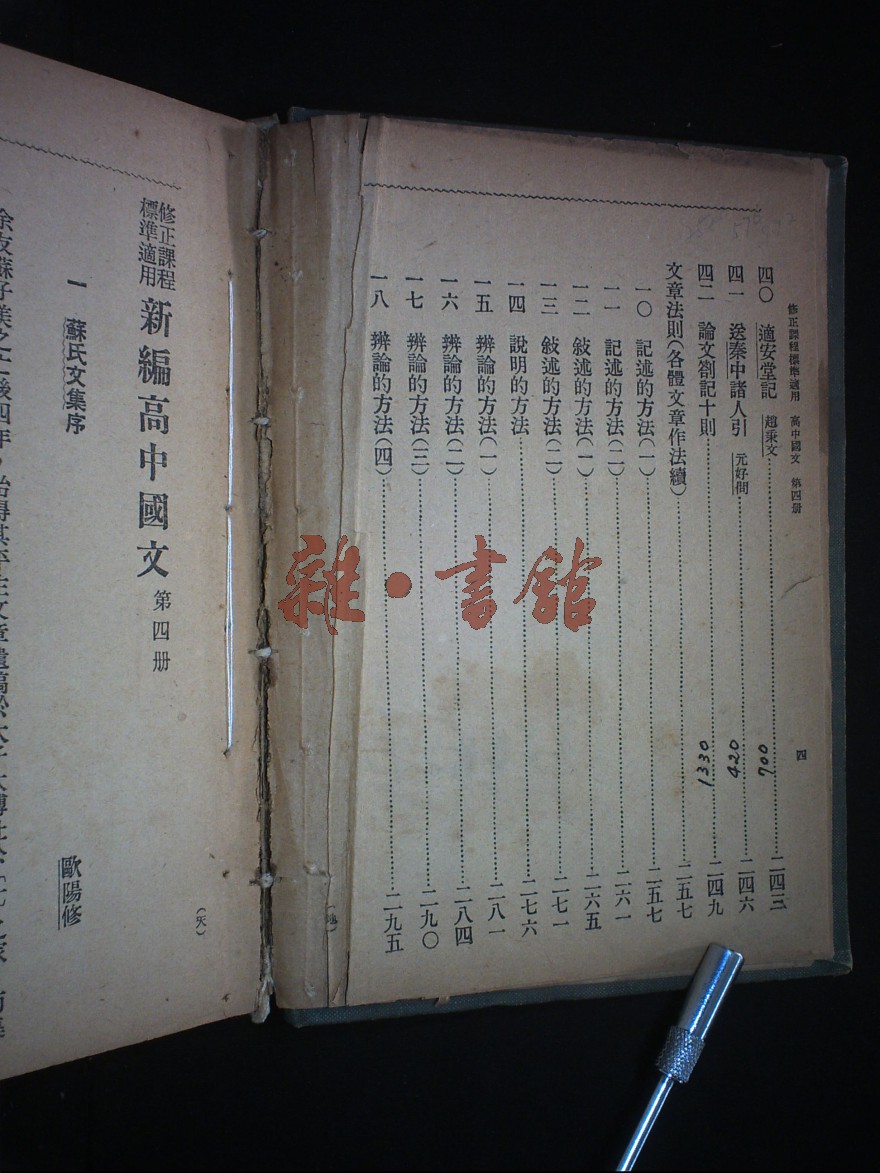 修正課程標準適用 高中國文 第四册
四
四〇 適安堂記 趙秉文 700 二四三
四一 送秦中諸人引 元好問 420 二四六
四二 論文劄記十則 1330 二四九
文章法則(各體文章作法續) 二五七
一〇 記述的方法(一) 二五七
一一 記述的方法(二) 二六一
一二 敍述的方法(一) 二六五
一三 敍述的方法(二) 二七一
一四 說明的方法 二七六
一五 辨論的方法(一) 二八一
一六 辨論的方法(二) 二八四
一七 辨論的方法(三) 二九〇
一八 辨論的方法(四) 二九五
修正課程標準適用 新編高中國文 第四册
一 蘇氏文集序 歐陽修
雜·書館